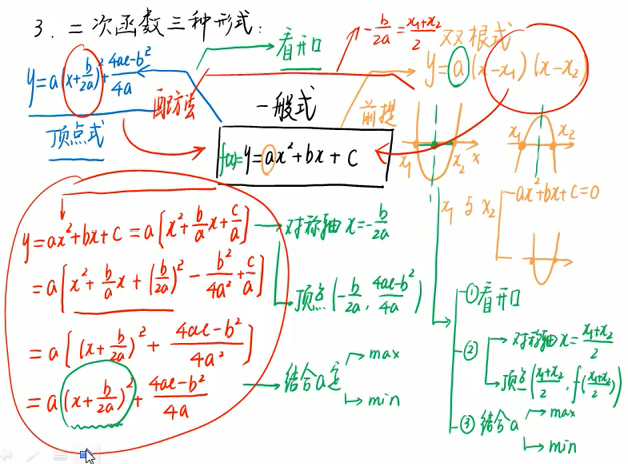 3. 二次函数三种形式:
看开口
-b/2a = (x₁+x₂)/2
双根式
y=a(x+b/2a)²+(4ac-b²)/4a
顶点式
配方法
一般式
前提
y=a(x-x₁)(x-x₂)
f(x)=y=ax²+bx+c
x₁ x₂ x
x₁ x₂
x₁与x₂
ax²+bx+c=0
y=ax²+bx+c=a[x²+(b/a)x+c/a]
=a[x²+(b/a)x+(b/2a)²-b²/4a²+c/a]
=a[(x+b/2a)²+(4ac-b²)/4a²]
=a(x+b/2a)²+(4ac-b²)/4a
对称轴x=-b/2a
顶点(-b/2a, (4ac-b²)/4a)
结合a定
max
min
①看开口
②
对称轴x=(x₁+x₂)/2
顶点((x₁+x₂)/2, f((x₁+x₂)/2))
③结合a
max
min